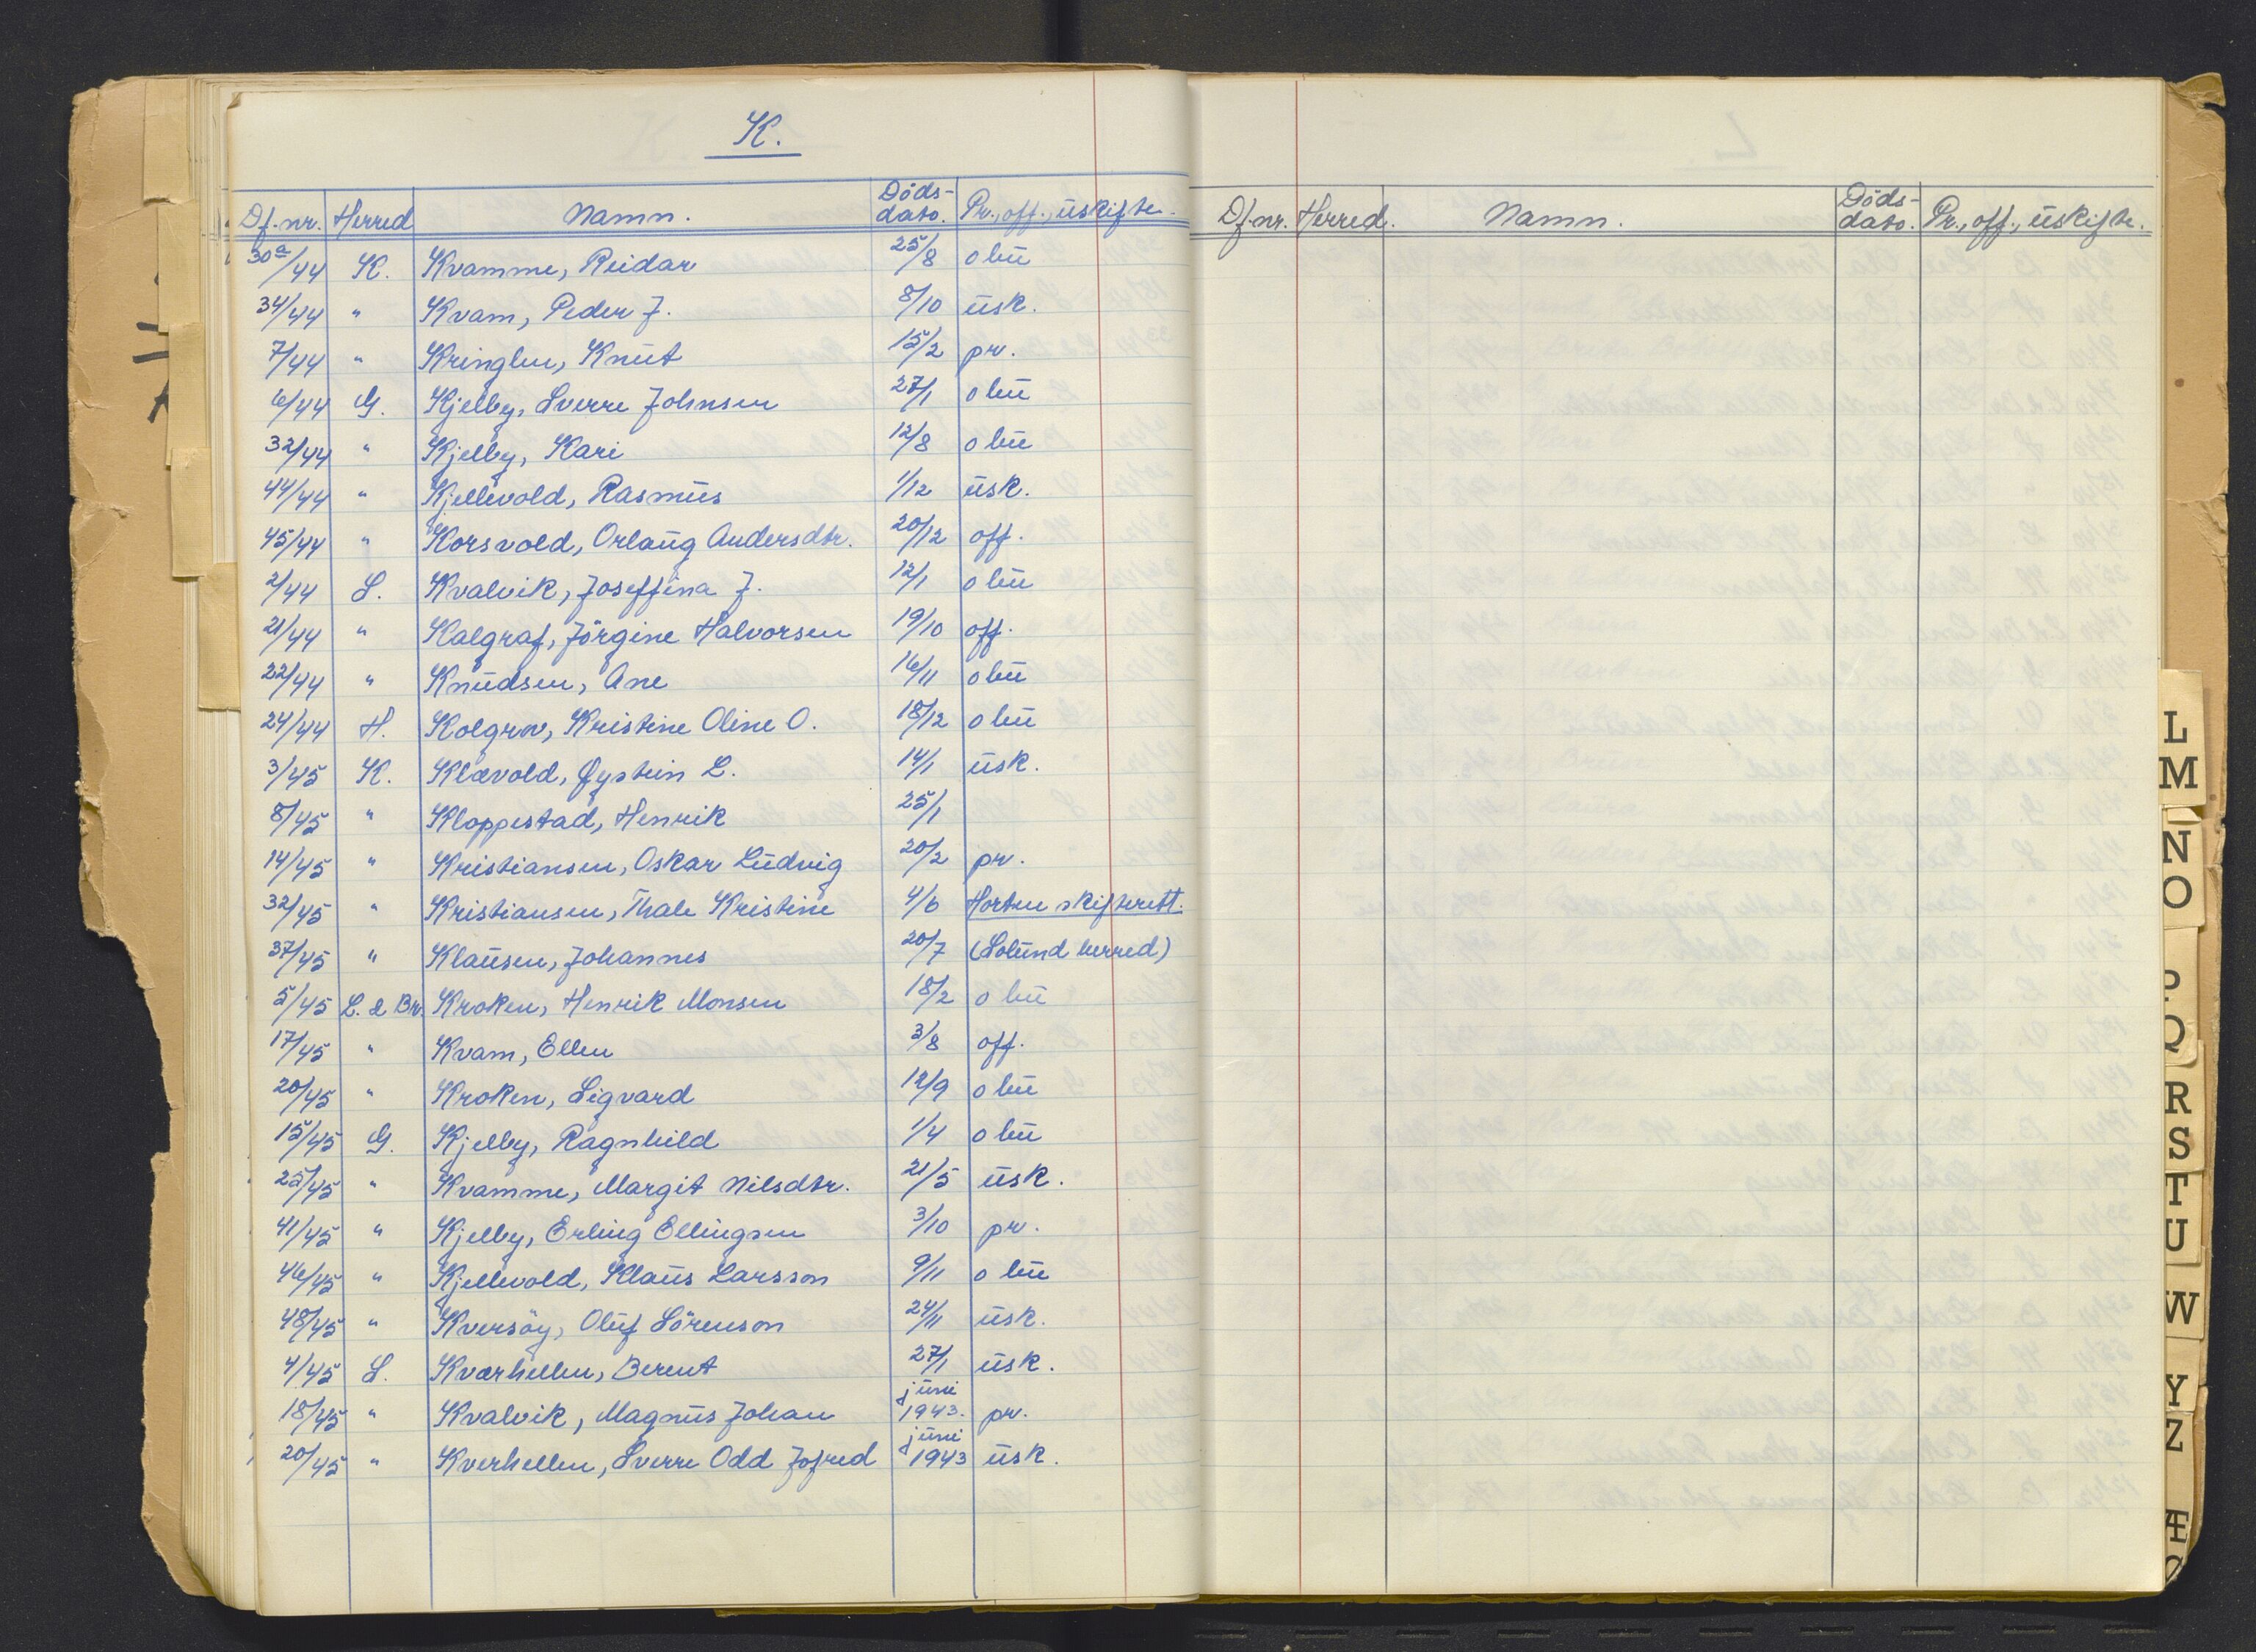 K.
Df.nr. Herred Namn. Döds-dato. Pr., off., uskifte.
30a/44 K. Kvamme, Reidar 25/8 o bu
34/44 " Kvam, Peder J. 8/10 usk.
7/44 " Kringlen, Knut 15/2 pr.
6/44 G. Kjelby, Sverre Johnsen 27/1 o bu
32/44 " Kjelby, Kari 12/8 o bu
44/44 " Kjellevold, Rasmus 1/12 usk.
45/44 " Korsvold, Orlaug Andersdtr. 20/12 off.
2/44 S. Kvalvik, Joseffina J. 12/1 o bu
21/44 " Kalgraf, Jörgine Halvorsen 19/10 off.
22/44 " Knudsen, Ane 16/11 o bu
24/44 H. Kolgrov, Kristine Oline O. 18/12 o bu
3/45 K. Klævold, Øystein L. 14/1 usk.
8/45 " Kloppestad, Henrik 25/1
14/45 " Kristiansen, Oskar Ludvig 20/2 pr.
32/45 " Kristiansen, Thale Kristine 4/6 Horten skifterett.
37/45 " Klausen, Johannes 20/7 (Solund herred)
5/45 L. & Br. Kroken, Henrik Monsen 18/2 o bu
17/45 " Kvam, Ellen 3/8 off.
20/45 " Kroken, Sigvard 12/9 o bu
15/45 G. Kjelby, Ragnhild 1/4 o bu
25/45 " Kvamme, Margit Nilsdtr. 21/5 usk.
41/45 " Kjelby, Erling Ellingsen 3/10 pr.
46/45 " Kjellevold, Klaus Larsson 9/11 o bu
48/45 " Kversöy, Oluf Sörenson 24/11 usk.
4/45 S. Kværhellen, Berent 27/1 usk.
18/45 " Kvalvik, Magnus Johan juni 1943. pr.
20/45 " Kverhellen, Sverre Odd Jofred juni 1943 usk.
Df.nr. Herred. Namn. Döds-dato. Pr., off., uskifte.
L
M
N
O
P
Q
R
S
T
U
W
Y
Z
Æ